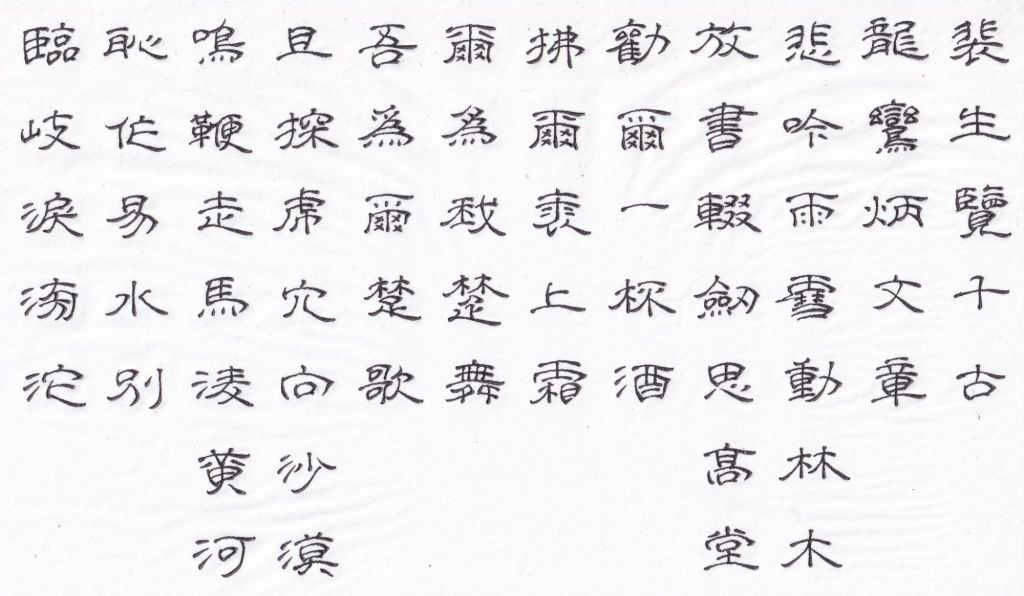 裴生覽千古
龍鸞炳文章
悲吟雨雪動林木
放書輟劒思髙堂
勸爾一杯酒
拂爾裘上霜
爾爲我楚舞
吾爲爾楚歌
且探虎穴向沙漠
鳴鞭走馬淩黄河
恥作易水別
臨岐淚滂沱